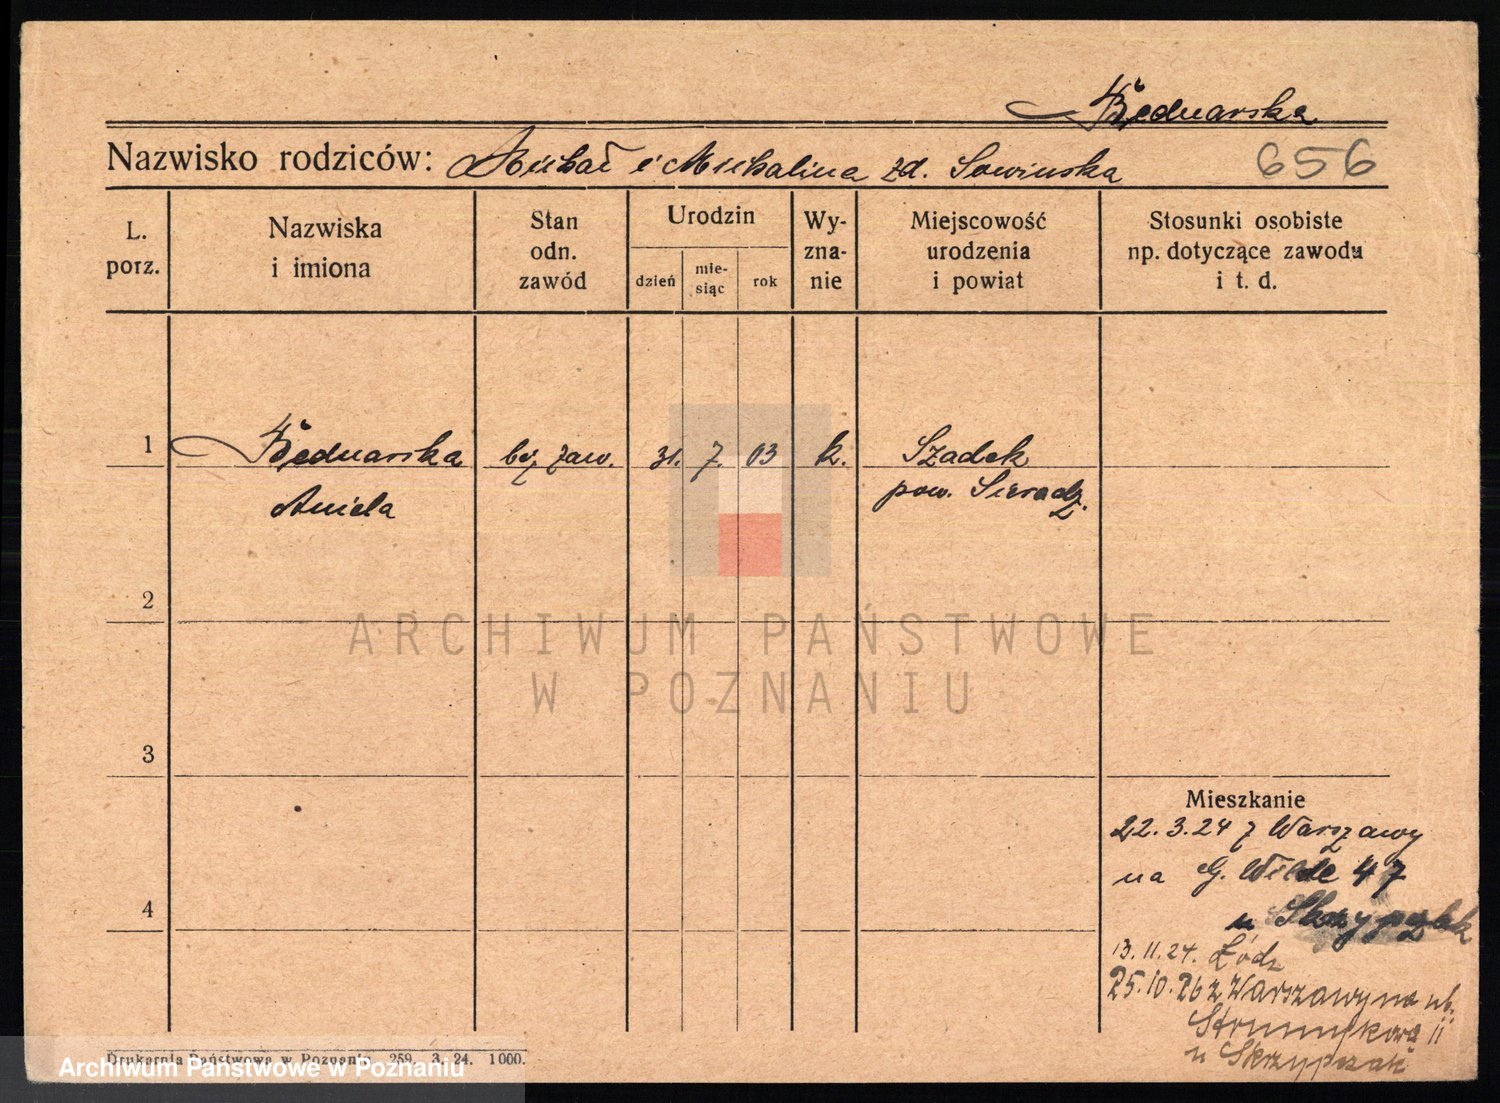 Bednarska
Nazwisko rodziców: Michał i Michalina zd. Sowińska 656
L. porz.
Nazwiska i imiona
Stan odn. zawód
Urodzin
dzień
mie-
siąc
rok
Wy-
zna-
nie
Miejscowość
urodzenia
i powiat
Stosunki osobiste
np. dotyczące zawodu
i t. d.
1 Bednarska bez zaw. 31. 7. 03 k. Szadek
Aniela pow. Sieradz.
2
3
4
Mieszkanie
22.3.24 z Warszawy
na G. Wilde 47
u Skrzypczak
13.11.24. Łódz
25.10.26 z Warszawy na ul.
Strumykowa 11
u Skrzypczak
Drukarnia Państwowa w Poznaniu. 259. 3. 24. 1000.
ARCHIWUM PAŃSTWOWE
W POZNANIU
Archiwum Państwowe w Poznaniu